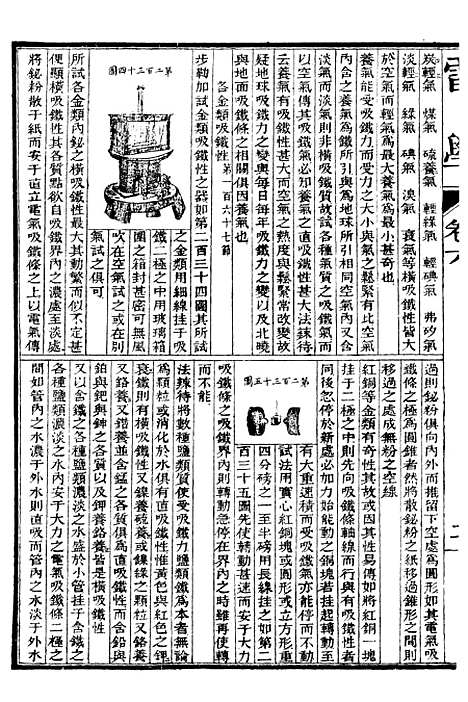 電學
卷六
炭輕氣　煤氣　硫養氣　輕綠氣　輕碘氣　弗矽氣
淡輕氣　綠氣　碘氣　溴氣　衰氣等橫吸鐵性皆大
於空氣而輕氣爲最大養氣爲最小甚奇也
養氣能受吸鐵力而受力之大小與氣之鬆緊有比空氣
內含之養氣爲鐵所引與爲地球所引相同空氣內又含
淡氣而淡氣則非橫吸鐵質故試各種氣質之橫吸鐵性
以空氣爲準則橫吸鐵性各氣必加空氣之數也法拉待
云養氣有吸鐵性甚大而空氣之熱度與鬆緊常改變故
疑地球吸鐵力之變與每日每年吸鐵力之變以及北曉
與地面吸鐵條之相關俱因養氣也
各金類橫吸鐵性第一百六十七節
步勒加試金類吸鐵性之器如第二百三十四圖其所試
第二百三十四圖
之金類用細線挂于吸
鐵二極之中用玻璃箱
圍之箱封甚密可無風
吹在空氣試之或在別
氣試之俱可
所試各金類內鉍之橫吸鐵性最大其動繁而似不定甚
便顯橫吸鐵性其各質點欲自吸鐵界內之濃處至淡處
將鉍粉散于紙而安于直立電氣吸鐵條之上以電氣傳
過則鉍粉俱向內外而推留下空處爲圓形如其電氣吸
鐵條之極爲圓錐者然將散鉍粉之紙移過錐形之間則
移過之處成無粉之空線
紅銅等金類有奇性其故或因其性易傳如將紅銅一塊
挂于二極之中則先向吸鐵條軸線而行與有吸鐵性者
同後忽停於新處必加力始能動之銅塊若挂起轉動至
有大重速積而受吸鐵氣亦能停而不動
試法用實心紅銅塊或圓形或立方形重
四分磅之一至半磅用長線挂之如第二
百三十五圖先使轉動甚速而安于大力
第二百三十五圖
吸鐵條之吸鐵界內則轉動急停在界內之時雖再有力
而不能
法拉待將數種鹽類質使受吸鐵力鹽類鐵爲本者無論
爲顆粒或消化於水中俱有吸鐵性惟黃色與紅色之鉀
衰鐵則有橫吸鐵性又鎳養硫養或鎳綠之顆粒又鉻養
又鉻養又錯養並含錳之各質俱爲直吸鐵性而含鉛與
鉑與鈀與鉮之各質以及鉀養鉻養皆是橫吸鐵性
又將含鐵之鹽類濃淡之水盛於小管十挂于含鐵之
各種鹽類濃淡之水內安于大力之電氣吸鐵條二極之
間如管內之水濃于外水則直吸而管內之水淡于外水